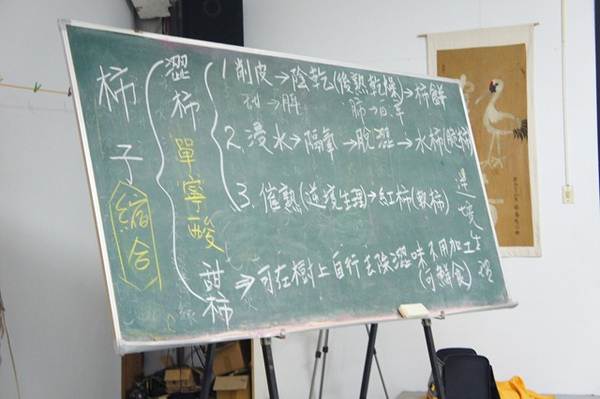 柿子
縮合
澀柿
單寧酸
1.削皮→陰乾(後熟乾燥)→柿餅
2.浸水→隔氧→脫澀→水柿(脆柿)
3.催熟(逆境生理)→紅柿(軟柿)
逆境生理
甜柿→可在樹上自行去除澀味不用加工
(可鮮食)